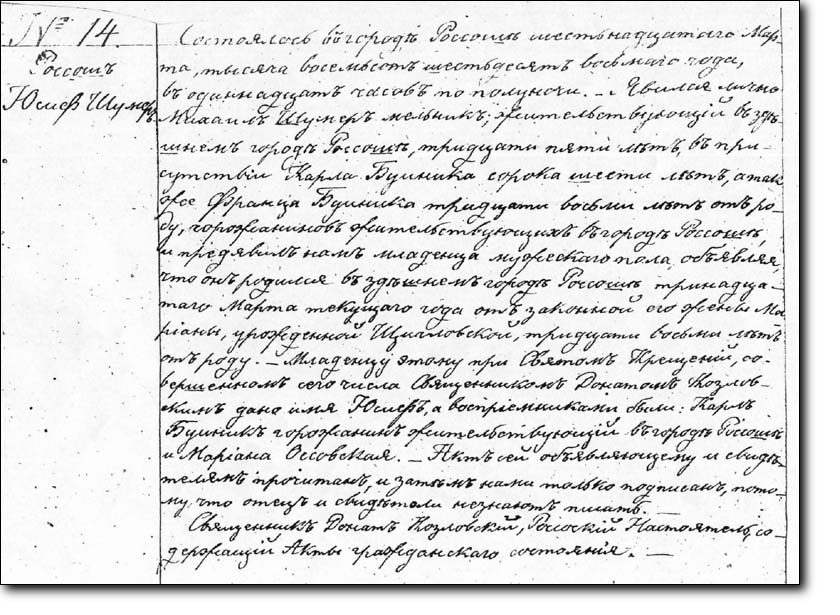 № 14.
Россошъ
Юсиѳъ Шумеръ
Состоялось въ городѣ Россошѣ шестьнадцатаго Мар-
та, тысяча восемьсотъ шестьдесятъ восьмаго года,
въ одиннадцатъ часовъ по полуночи. — Явился лично
Михаилъ Шумеръ мельникъ; жительствующій въ здѣ-
шнемъ городѣ Россошѣ, тридцати пяти лѣтъ, въ при-
сутствіи Карла Буйника сорока шести лѣтъ, а так
же Франца Буйника тридцати восьми лѣтъ отъ ро-
ду, горожаниновъ жительствующихъ въ городѣ Россошѣ,
и предявилъ намъ младенца мужескаго пола, объявляя,
что онъ родился въ здѣшнемъ городѣ Россошѣ тринадца-
таго Марта текущаго года отъ законной его жены Ма-
ріаны, урожденной Щигловской, тридцати восьми лѣтъ
отъ роду. — Младенцу этому при Святомъ Крещеніи, со-
вершенномъ сего числа Священникомъ Донатомъ Козлов-
скимъ дано имя Юсиѳъ, а воспріемниками были: Карлъ
Буйникъ горожанинъ жительствующій въ городѣ Россошѣ
и Маріана Оссовская. — Актъ сей объявляющему и свидѣ-
телямъ прочитанъ, и затѣмъ нами только подписанъ, пото-
му, что отецъ и свидѣтели незнаютъ писать. —
Священникъ Донатъ Козловскій, Россоскій Настоятель, со-
держащій Акты гражданскаго состоянія. —